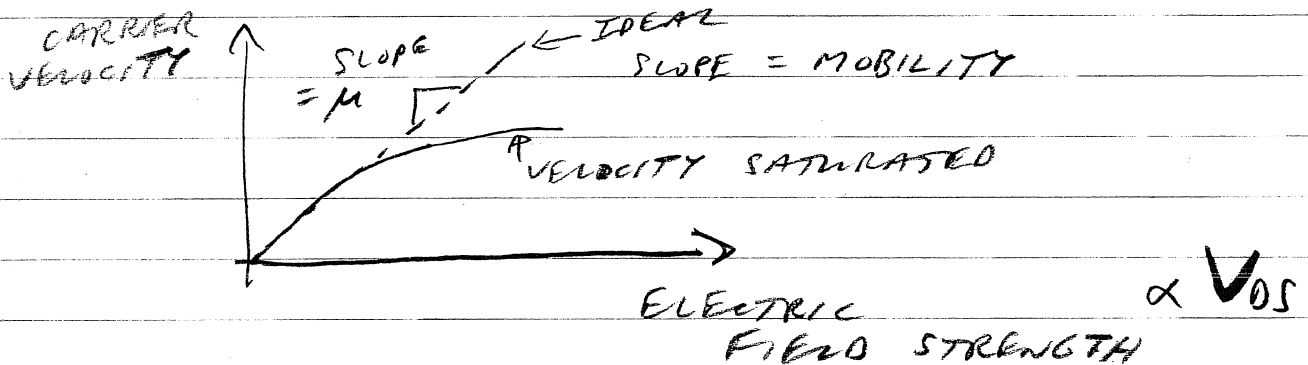 CARRIER
VELOCITY
SLOPE
= μ
← IDEAL
SLOPE = MOBILITY
VELOCITY SATURATED
ELECTRIC
FIELD STRENGTH
∝ VDS